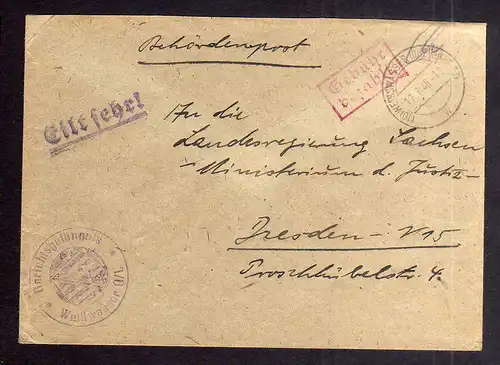 Behördenpost
Gebühr
bezahlt
Eilt sehr!
An die
Landesregierung Sachsen
Ministerium d. Justiz
Dresden-N15
Proschhübelstr. 4.
Gerichtsgefängnis
Weißwasser O/L